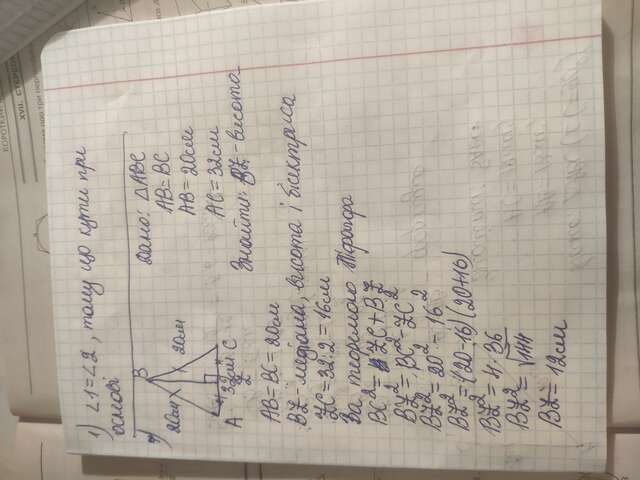 1) ∠1=∠2, тому що кути при
основі
2)
Дано: △ABC
AB=BC
AB=20см
AC=32см
Знайти: BZ-висота
B
20см
20см
A 32см C
2
AB=BC=20см
BZ- медіана, висота і бісектриса
ZC=32:2=16см
За теоремою Піфагора
BC²=ZC²+BZ²
BZ²=BC²-ZC²
BZ²=20²-16²
BZ²=(20-16)(20+16)
BZ²=4·36
BZ²=√144
BZ=12см
XVII.